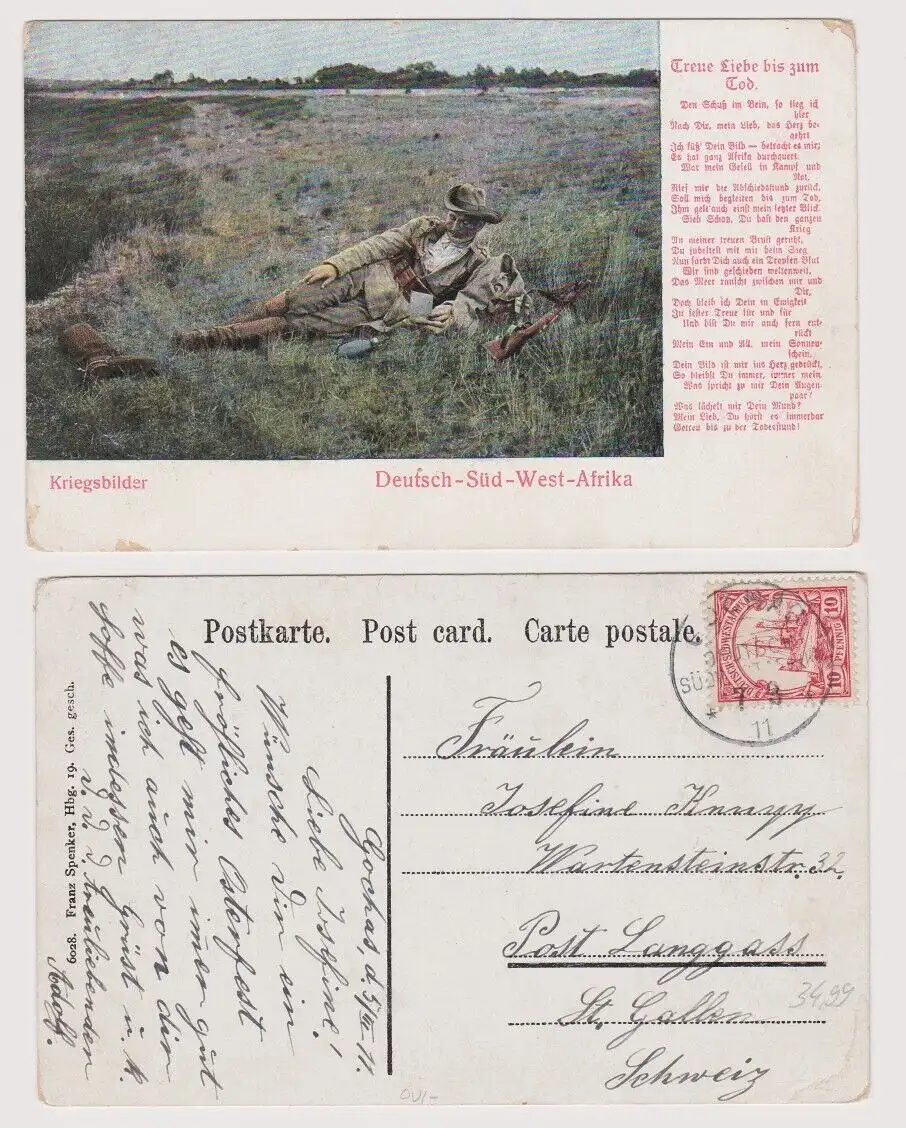 Treue Liebe bis zum
Tod.
Den Schuß im Bein, so lieg ich
hier
Nach Dir, mein Lieb, das Herz be-
gehrt
Ich küß' Dein Bild — betracht es mir;
Es hat ganz Afrika durchquert.
War mein Gesell in Kampf und
Not,
Rief mir die Abschiedsstund zurück,
Soll mich begleiten bis zum Tod,
Ihm gelt' auch einst mein letzter Blick.
Sieh Schatz, Du hast den ganzen
Krieg
An meiner treuen Brust geruht,
Du jubeltest mit mir beim Sieg
Nun färbt Dich auch ein Tropfen Blut
Wir sind geschieden weltenweit,
Das Meer rauscht zwischen mir und
Dir,
Doch bleib ich Dein in Ewigkeit
In fester Treue für und für
Und bist Du mir auch fern ent-
rückt
Mein Ein und All, mein Sonnen-
schein,
Dein Bild ist mir ins Herz gedrückt,
So bleibst Du immer, immer mein.
Was spricht zu mir Dein Augen-
paar?
Was lächelt mir Dein Mund?
Mein Lieb, Du hörst es immerbar
Getreu bis zu der Todesstund!
Kriegsbilder
Deutsch-Süd-West-Afrika
Postkarte. Post card. Carte postale.
DEUTSCH-SÜDWESTAFRIKA
10 PFENNIG 10
7 3
11
Gochas, d. 5/III 11.
Liebe Josefine!
Wünsche Dir ein
fröhliches Osterfest
es geht mir immer gut
was ich auch von dir
hoffe indessen Grüst u. k.
d. d. d. treuliebender
Adolf.
6028. Franz Spenker, Hbg. 19. Ges. gesch.
Fräulein
Josefine
Wartensteinstr. 32.
Post Langgass
St. Gallen
Schweiz
34,99